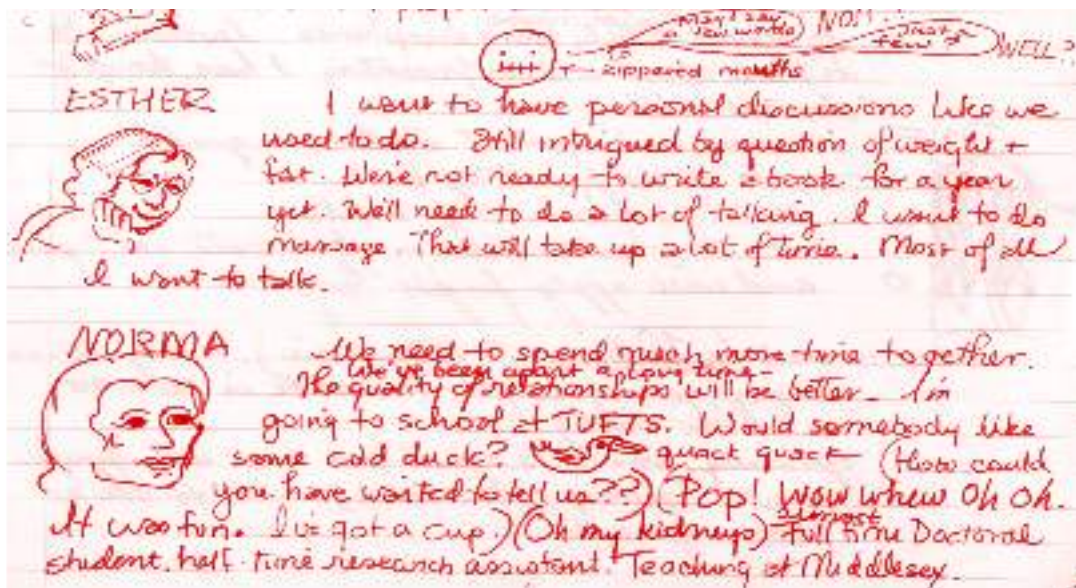 May I say
a few words NOM?
Just a
few? WELL?
zippered mouths
ESTHER
I want to have personal discussions like we
used to do. Still intrigued by question of weight +
fat. We're not ready to write a book for a year
yet. We'll need to do a lot of talking. I want to do
massage. That will take up a lot of time. Most of all
I want to talk.
NORMA
We need to spend much more time together.
We've been apart a long time-
The quality of relationships will be better. I'm
going to school at TUFTS. Would somebody like
some cold duck? quack quack (How could
you have waited to tell us??) (Pop! Wow whew Oh Oh.
It was fun. I've got a cup.) (Oh my kidneys) Full time Doctoral
student. half time research assistant. Teaching at Middlesex.